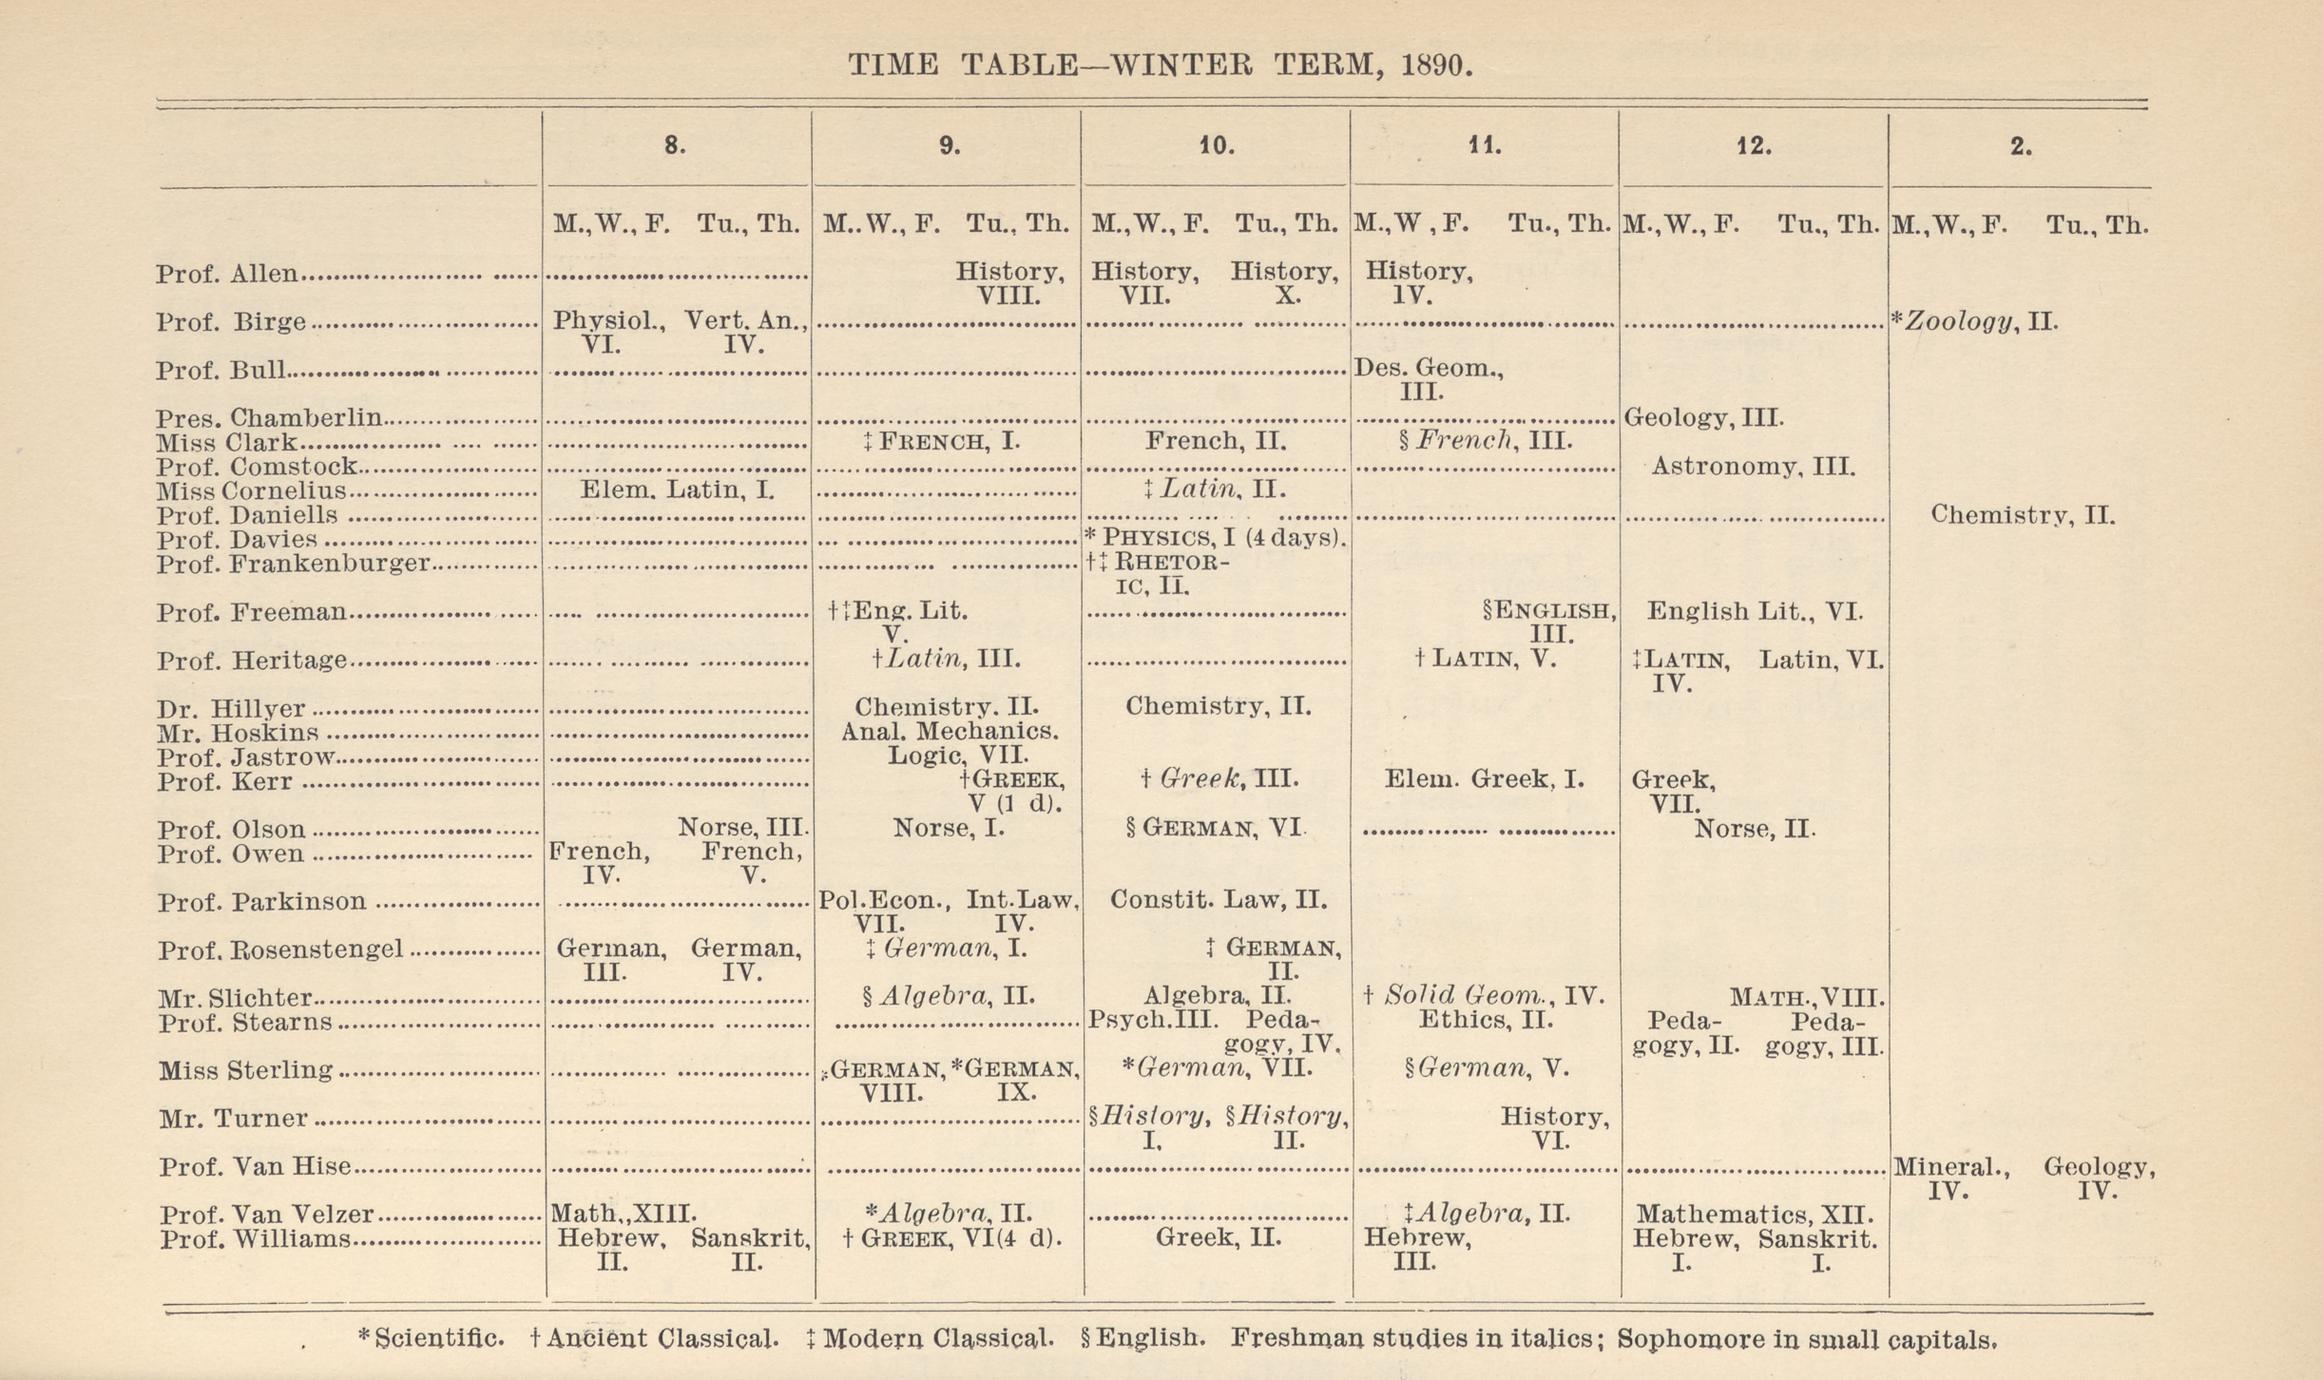 TIME TABLE—WINTER TERM, 1890.
8. 9. 10. 11. 12. 2.
M., W., F. Tu., Th. M.. W., F. Tu., Th. M., W., F. Tu., Th. M., W , F. Tu., Th. M., W., F. Tu., Th. M., W., F. Tu., Th.
Prof. Allen History, History, History, History,
VIII. VII. X. 1V.
Prof. Birge Physiol., Vert. An., *Zoology, II.
VI. IV.
Prof. Bull Des. Geom.,
III.
Pres. Chamberlin Geology, III.
Miss Clark ‡ FRENCH, I. French, II. § French, III.
Prof. Comstock Astronomy, III.
Miss Cornelius Elem. Latin, I. ‡ Latin, II.
Prof. Daniells Chemistry, II.
Prof. Davies * PHYSICS, I (4 days).
Prof. Frankenburger †‡ RHETOR-
IC, II.
Prof. Freeman †‡Eng. Lit. §ENGLISH, English Lit., VI.
V. III.
Prof. Heritage †Latin, III. † LATIN, V. ‡LATIN, Latin, VI.
IV.
Dr. Hillyer Chemistry. II. Chemistry, II.
Mr. Hoskins Anal. Mechanics.
Prof. Jastrow Logic, VII.
Prof. Kerr †GREEK, † Greek, III. Elem. Greek, I. Greek,
V (1 d). VII.
Prof. Olson Norse, III. Norse, I. § GERMAN, VI. Norse, II.
Prof. Owen French, French,
IV. V.
Prof. Parkinson Pol. Econ., Int. Law, Constit. Law, II.
VII. IV.
Prof. Rosenstengel German, German, ‡ German, I. ‡ GERMAN,
III. IV. II.
Mr. Slichter § Algebra, II. Algebra, II. † Solid Geom., IV. MATH., VIII.
Prof. Stearns Psych. III. Peda- Ethics, II. Peda- Peda-
gogy, IV. gogy, II. gogy, III.
Miss Sterling GERMAN, *GERMAN, *German, VII. §German, V.
VIII. IX.
Mr. Turner §History, §History, History,
I. II. VI.
Prof. Van Hise Mineral., Geology,
IV. IV.
Prof. Van Velzer Math., XIII. *Algebra, II. ‡Algebra, II. Mathematics, XII.
Prof. Williams Hebrew, Sanskrit, † GREEK, VI (4 d). Greek, II. Hebrew, Hebrew, Sanskrit.
II. II. III. I. I.
*Scientific. †Ancient Classical. ‡Modern Classical. §English. Freshman studies in italics; Sophomore in small capitals.